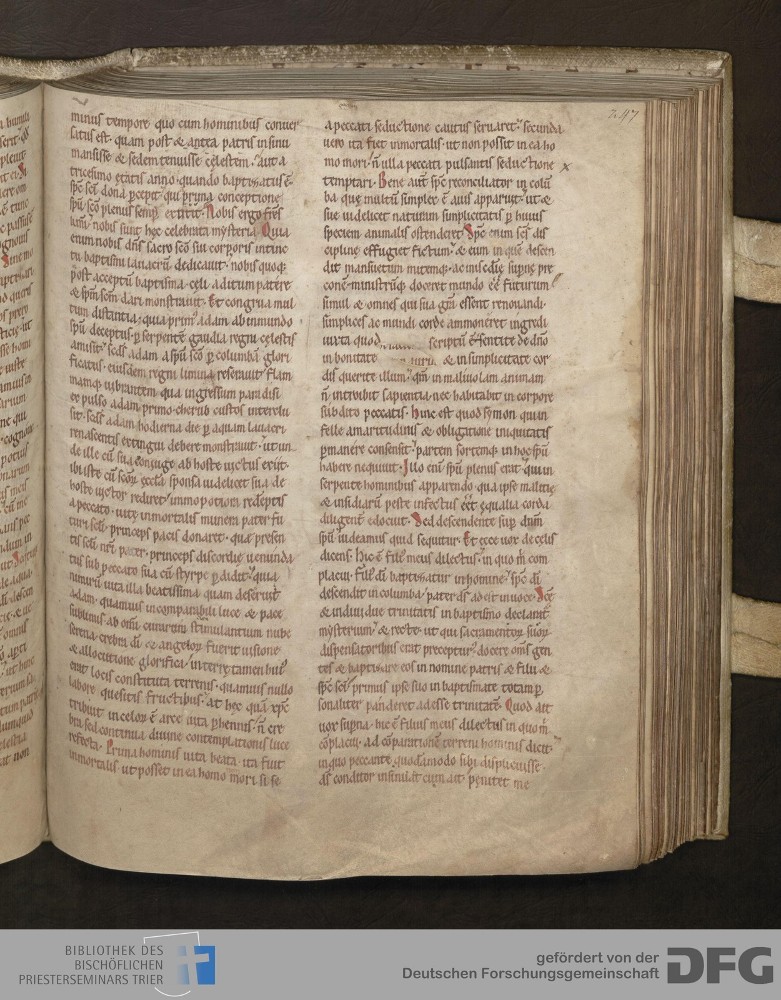 247
minus tempore quo cum hominibus conuer
satus est. quam post & antea patris in sinu
mansisse & sedem tenuisse celestem. aut a
tricesimo etatis anno quando baptizatus ē
spc sci dona pcepit qui prima conceptione
spu sco plenus semp extitit. Nobis ergo frs
kmi nobis sunt hec celebrata mysteria. Quia
enim nobis dns sacro sco sui corporis intinc
tu baptismi lauacrū dedicauit. nobis quoq;
post acceptū baptisma celi aditum patere
& spm scm dari monstrauit. Et congrua mul
tum distantia. quia prim adam ab inmundo
spu deceptus p serpentē gaudia regni celestis
amisit. scds adam a spu sco p columbā glori
ficatus. eiusdem regni limina reserauit. flam
mamq; uibrantem qua ingressum paradisi
expulso adam primo cherub custos interclu
sit. scds adam hodierna die p aquam lauacri
renascentis extingui debere monstrauit. ut un
de ille cū sua coniuge ab hoste uictus exiit.
ibi iste cū scōꝝ eccla sponsa uidelicet sua de
hoste uictor rediret. immo potiora redeptis
a peccato uite inmortalis munera pater fu
turi scli princeps pacis donaret. qua presen
tis scli nri pater princeps discordie uenunda
tus sub peccato sua cū styrpe pdidit. quia
nimirū uita illa beatissima quam deseruit
adam. quamuis incomparabili luce & pace
sublimis ab omi curarum stimulantium nube
serena. crebra di & angeloꝝ fuerit uisione
& allocutione glorifica. in terre tamen huiˀ
erat locis constituta terrenis. quamuis nullo
labore quesitis fructibus. at hec qua xpc
tribuit in celoꝝ ē arce uita phennis. n cre
bra sed continua diuine contemplationis luce
refecta. Prima hominis uita beata. ita fuit
inmortalis ut posset in ea homo mori si se
a peccati seductione cautus seruaret. secunda
uero ita fiet inmortalis. ut non possit in ea ho
mo mori. n ulla peccati pulsantis seductione
temptari. Bene aut spc reconciliator in colū
ba que multū simplex ē auis apparuit. ut &
sue uidelicet naturam simplicitatis p huius
speciem animalis ostenderet. Spc enim scs dis
cipline effugiet fictum. & eum in quē descen
dit mansuetum mitemq; ac misedie supne pre
conē ministrūq; doceret mundo eē futurum
simul & omnes qui sua grā essent renouandi.
simplices ac mundi corde ammoneret ingredi
iuxta quod scriptū ē. sentite de dno
in bonitate & in simplicitate cor
dis querite illum. qm in maliuolam animam
n introibit sapientia nec habitabit in corpore
subdito peccatis. hinc est quod symon quia in
felle amaritudinis & obligatione iniquitatis
pmanere consensit. partem sortemq; in hoc spu
habere nequiuit. Illo eni spu plenus erat qui in
serpente hominibus apparendo. qua ipse malitie
& insidiarū peste infectus eēt. equalia corda
diligenti edocuit. Sed descendente sup dnm
spu uideamus quid sequitur. Et ecce uox de celis
dicens. hic ē filˀ meus dilectus. in quo m com
placui. Filˀ di baptizatur in homine. spc di
descendit in columba. pater ds adest in uoce. Sce
& indiuidue trinitatis in baptismo declarat
mysterium. & recte. ut qui sacramentoꝝ suoꝝ
dispensatoribus erat precepturˀ docere oms gen
tes & baptizare eos in nomine patris & filii &
spc sci. primus ipse suo in baptismate totam p
sonaliter panderet adesse trinitatē. Quod ait
uox supna. hic ē filius meus dilectus in quo m
cōplacui. ad cōparationē terreni hominis dicit.
in quo peccante quodāmodo sibi displicuisse
ds conditor insinuat cum ait. penitet me
BIBLIOTHEK DES
BISCHÖFLICHEN
PRIESTERSEMINARS TRIER
gefördert von der
Deutschen Forschungsgemeinschaft
DFG